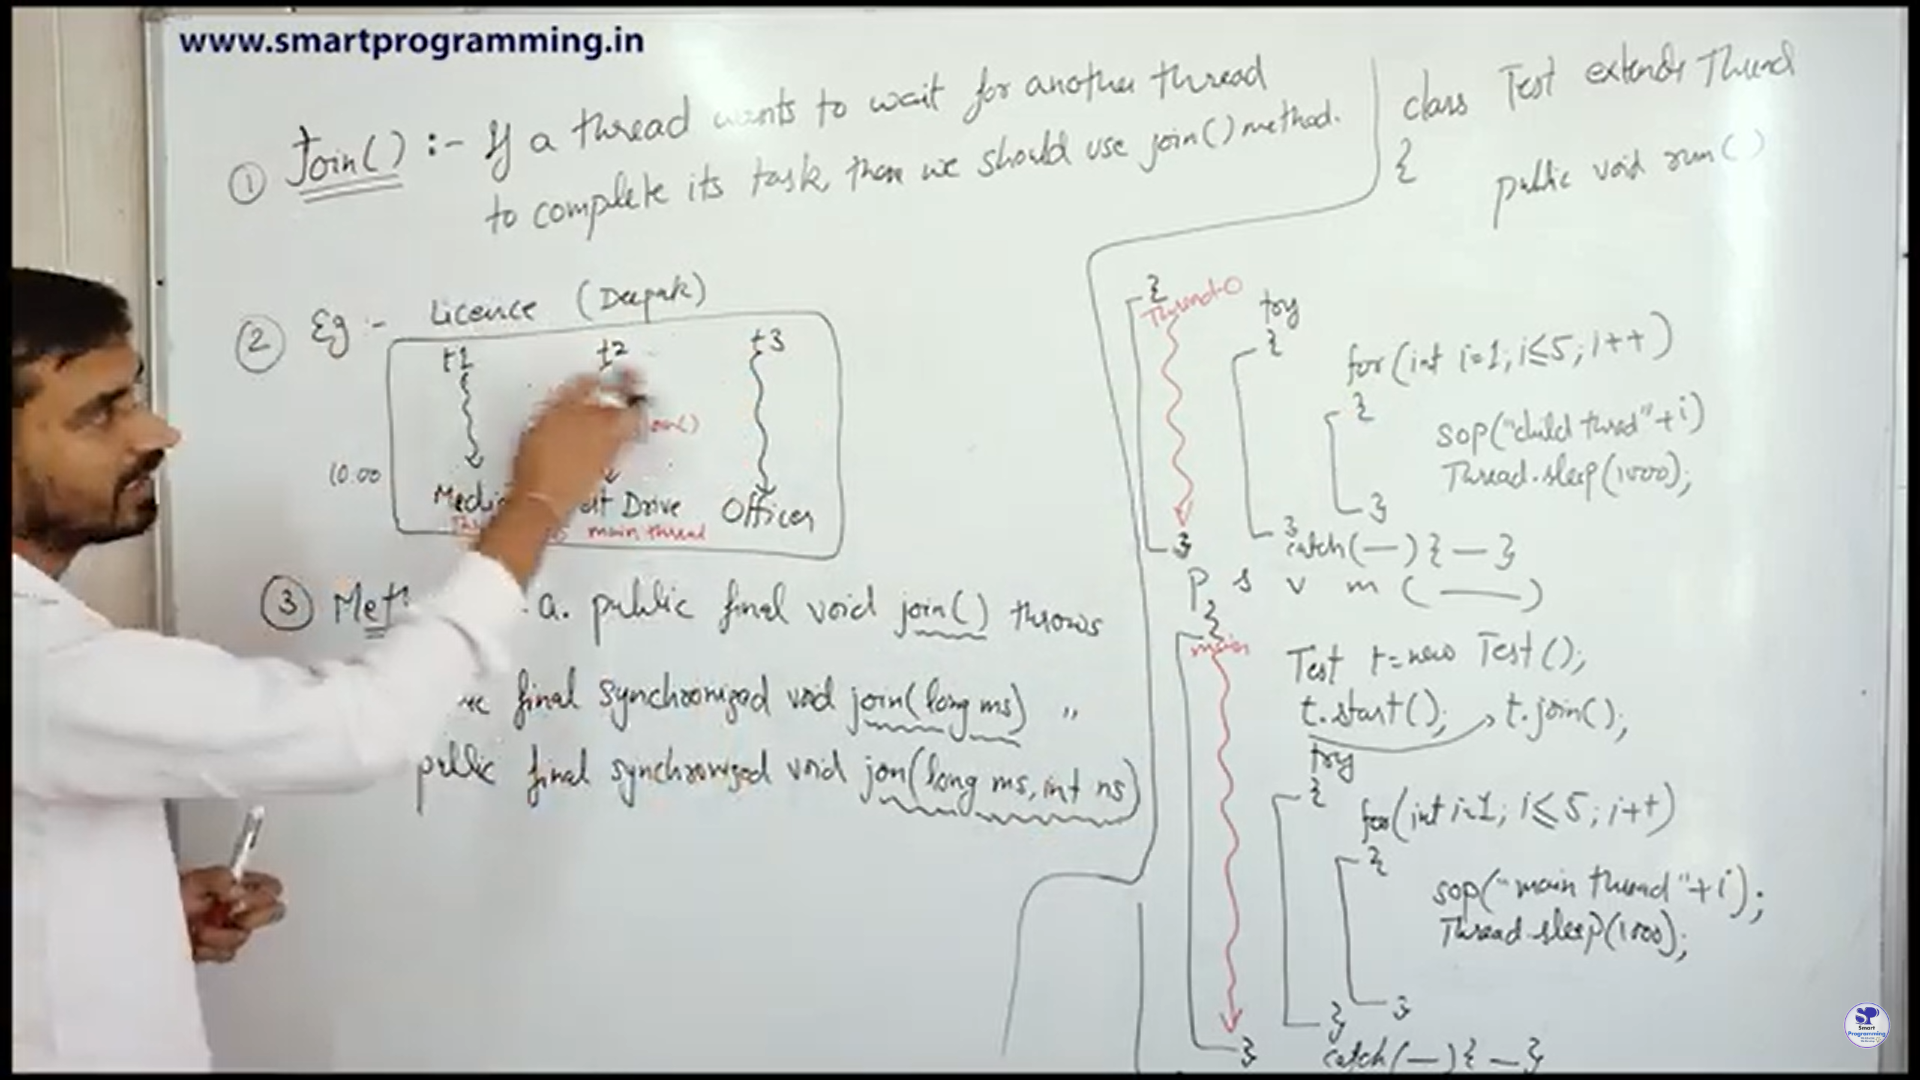 www.smartprogramming.in
① Join() :- If a thread wants to wait for another thread
to complete its task, then we should use join() method.
② Eg :- Licence (Deepak)
t1 t2 t3
10.00
Drive Officer
main thread
③ a. public final void join() throws
final synchronized void join(long ms) "
public final synchronized void join(long ms, int ns)
class Test extends Thread
{
public void run()
{
Thread-0
try
{
for(int i=1; i≤5; i++)
{
sop("child thread"+i)
Thread.sleep(1000);
}
}
catch(—){—}
}
p s v m (——)
{
main
Test t=new Test();
t.start(); t.join();
try
{
for(int i=1; i≤5; i++)
{
sop("main thread"+i);
Thread.sleep(1000);
}
}
catch(—){—}
}
SP
Smart
Programming